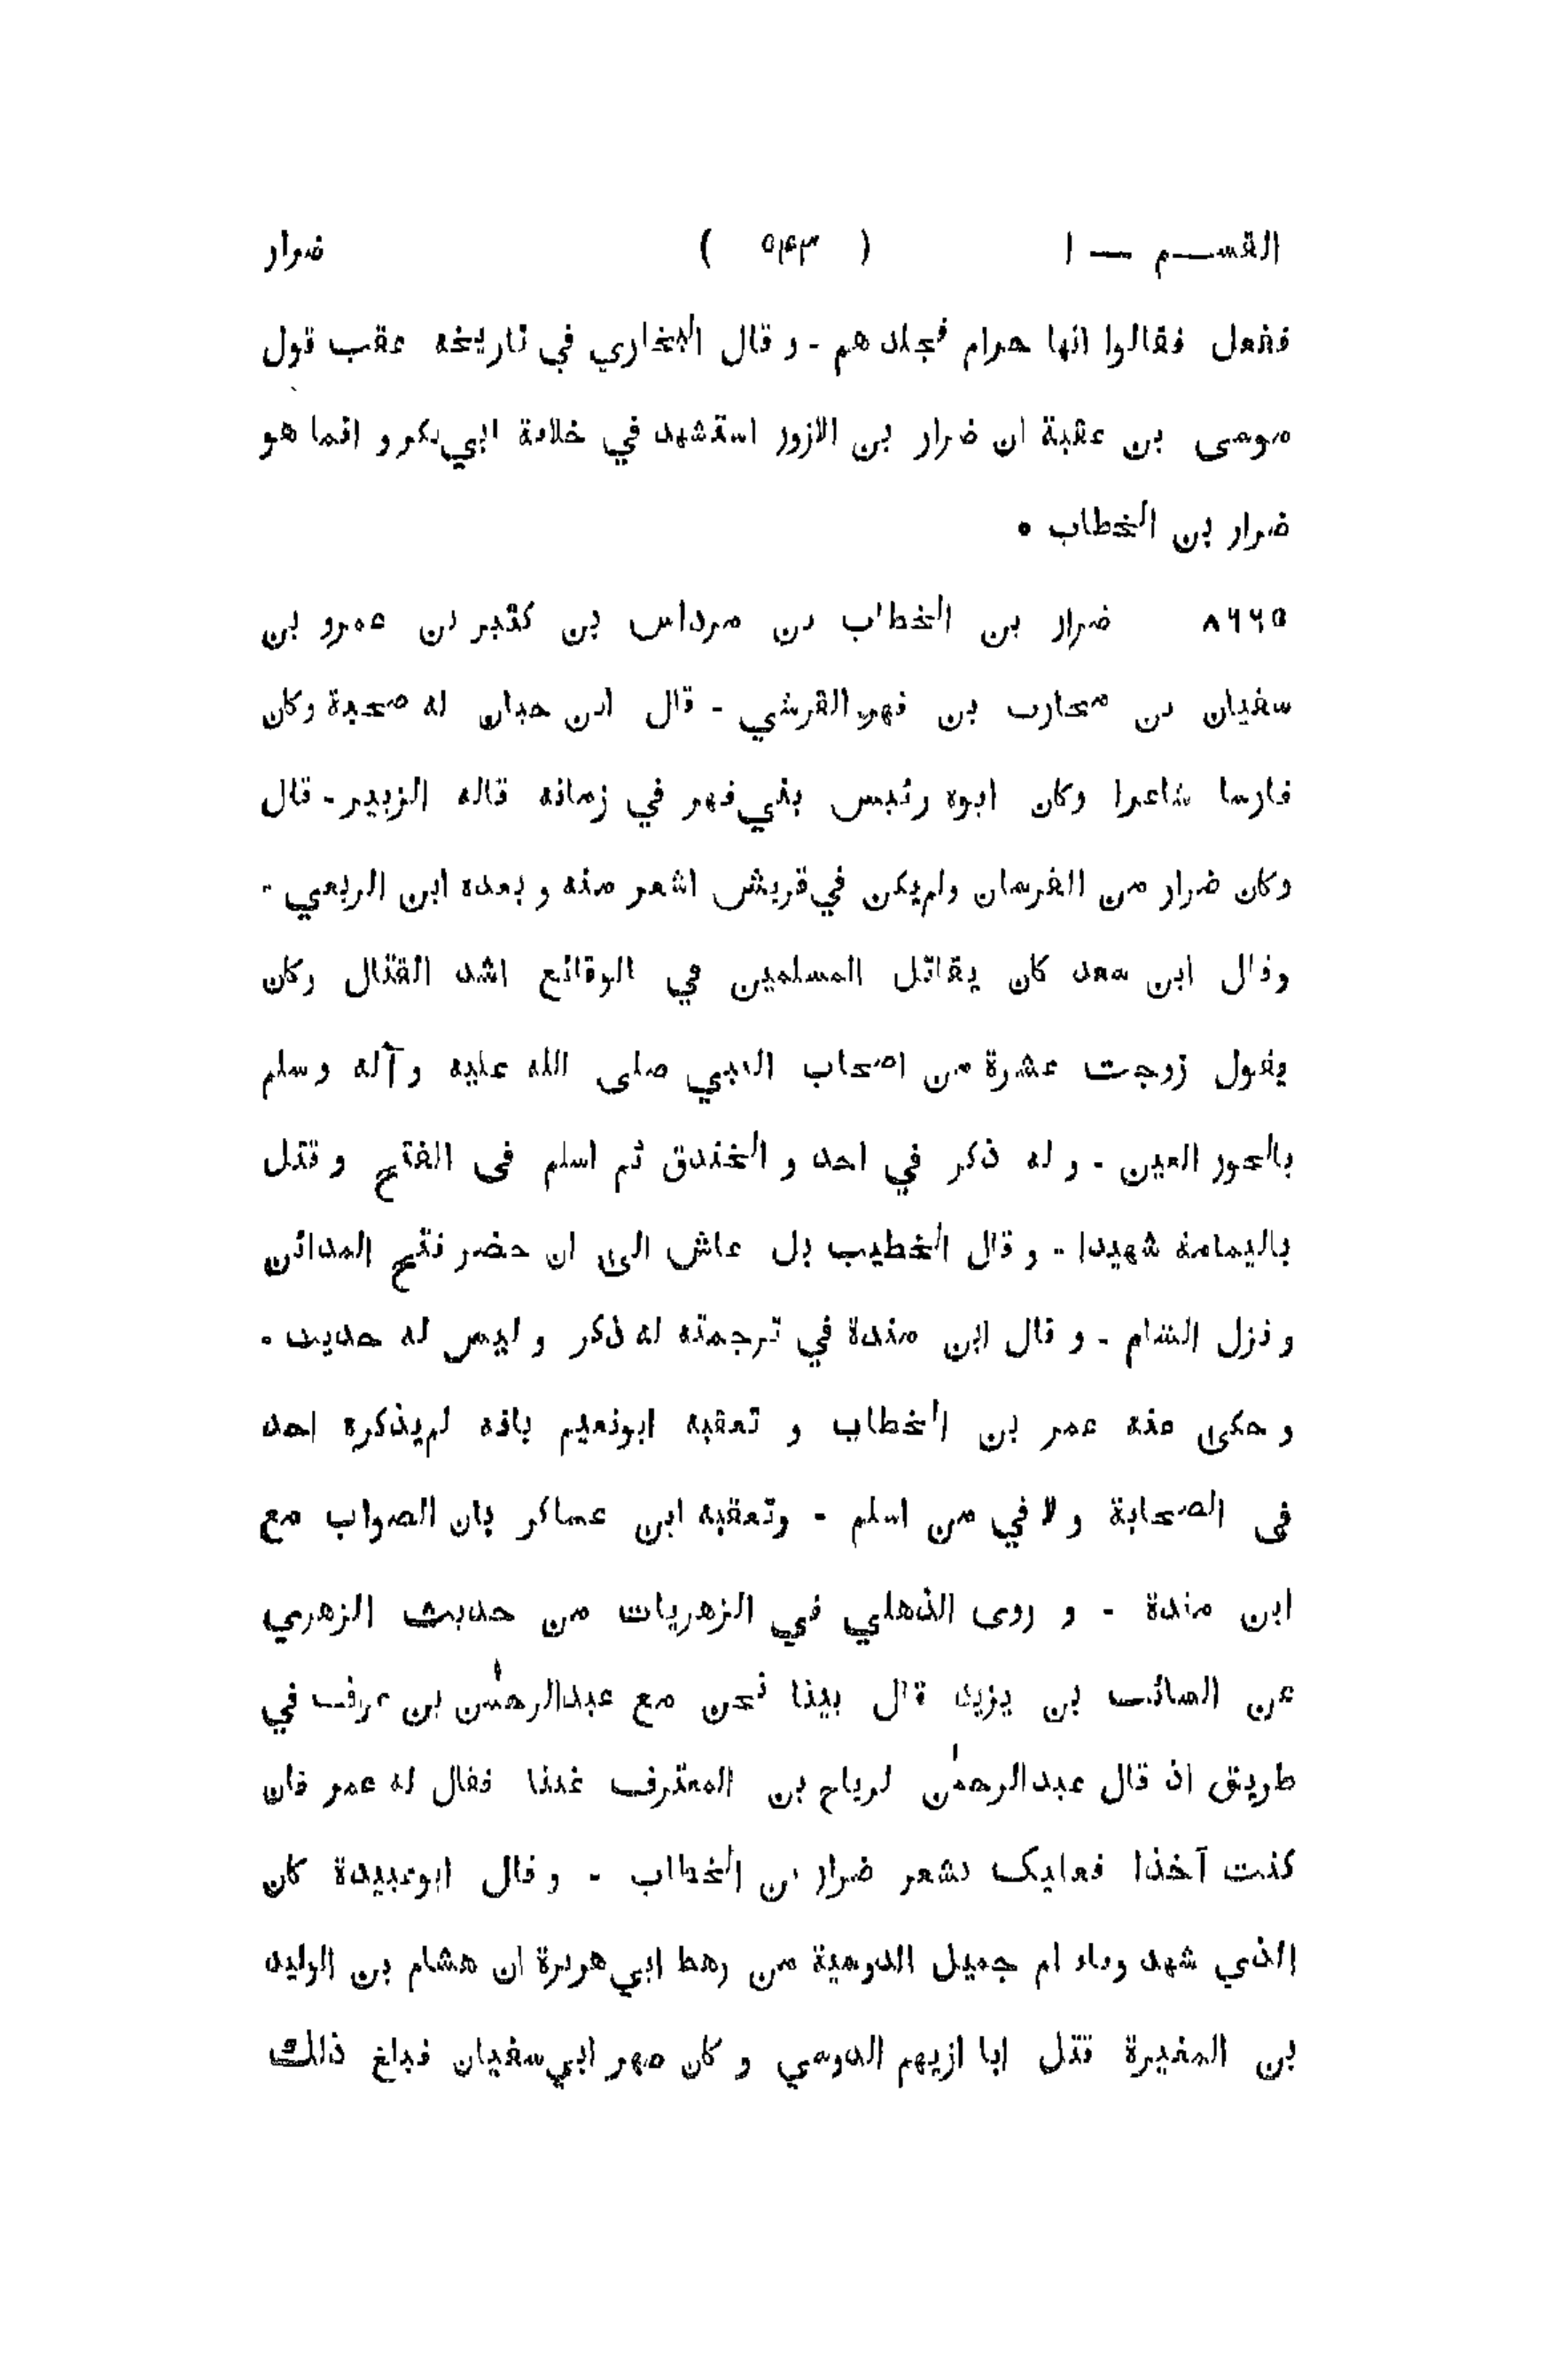 القسم — ١ ( ٥۴٣ ) ضرار
ففعل فقالوا انها حرام فجلدهم - و قال البخاري في تاريخه عقب قول
موسى بن عقبة ان ضرار بن الازور استشهد في خلافة ابي بكر و انما هو
ضرار بن الخطاب •
٨٦٦٥ ضرار بن الخطاب بن مرداس بن كثير بن عمرو بن
سفيان بن محارب بن فهر القرشي - قال ابن حبان له صحبة وكان
فارسا شاعرا وكان ابوه رئيس بني فهر في زمانه قاله الزبير - قال
وكان ضرار من الفرسان ولم يكن في قريش اشعر منه و بعده ابن الزبعي -
وقال ابن سعد كان يقاتل المسلمين في الوقائع اشد القتال وكان
يقول زوجت عشرة من اصحاب النبي صلى الله عليه وآله وسلم
بالحور العين - و له ذكر في احد و الخندق ثم اسلم فى الفتح و قتل
باليمامة شهيدا - و قال الخطيب بل عاش الى ان حضر فتح المدائن
و نزل الشام - و قال ابن مندة في ترجمته له ذكر و ليس له حديث •
و حكى عنه عمر بن الخطاب و تعقبه ابونعيم بانه لم يذكره احد
فى الصحابة و لا في من اسلم - وتعقبه ابن عساكر بان الصواب مع
ابن مندة - و روى الذهلي في الزهريات من حديث الزهري
عن السائب بن يزيد قال بينا نحن مع عبدالرحمٰن بن عوف في
طريق اذ قال عبدالرحمٰن لرياح بن المعترف غننا فقال له عمر فان
كنت آخذا فعليك بشعر ضرار بن الخطاب - و قال ابوعبيدة كان
الذي شهد وفاء ام جميل الدوسية من رهط ابي هريرة ان هشام بن الوليد
بن المغيرة قتل ابا ازيهر الدوسي و كان صهر ابي سفيان فبلغ ذلك